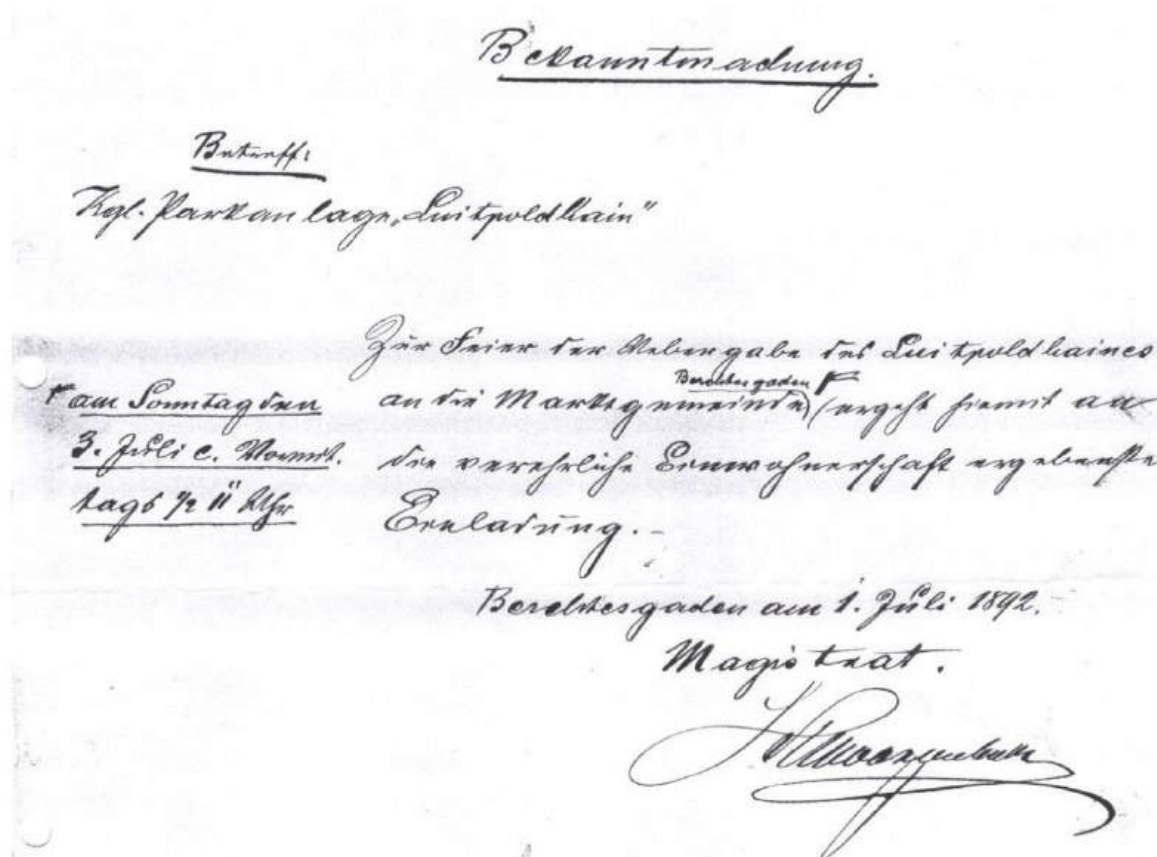 Bekanntmachung.
Betreff:
Kgl. Parkanlage „Luitpoldhain“
Zur Feier der Uebergabe des Luitpoldhaines
Berchtesgaden
an die Marktgemeinde ergeht hiemit an
die verehrliche Einwohnerschaft ergebenste
Einladung.
am Sonntag den
3. Juli c. Vormit.
tags ½ 11 Uhr
Berchtesgaden am 1. Juli 1892.
Magistrat.